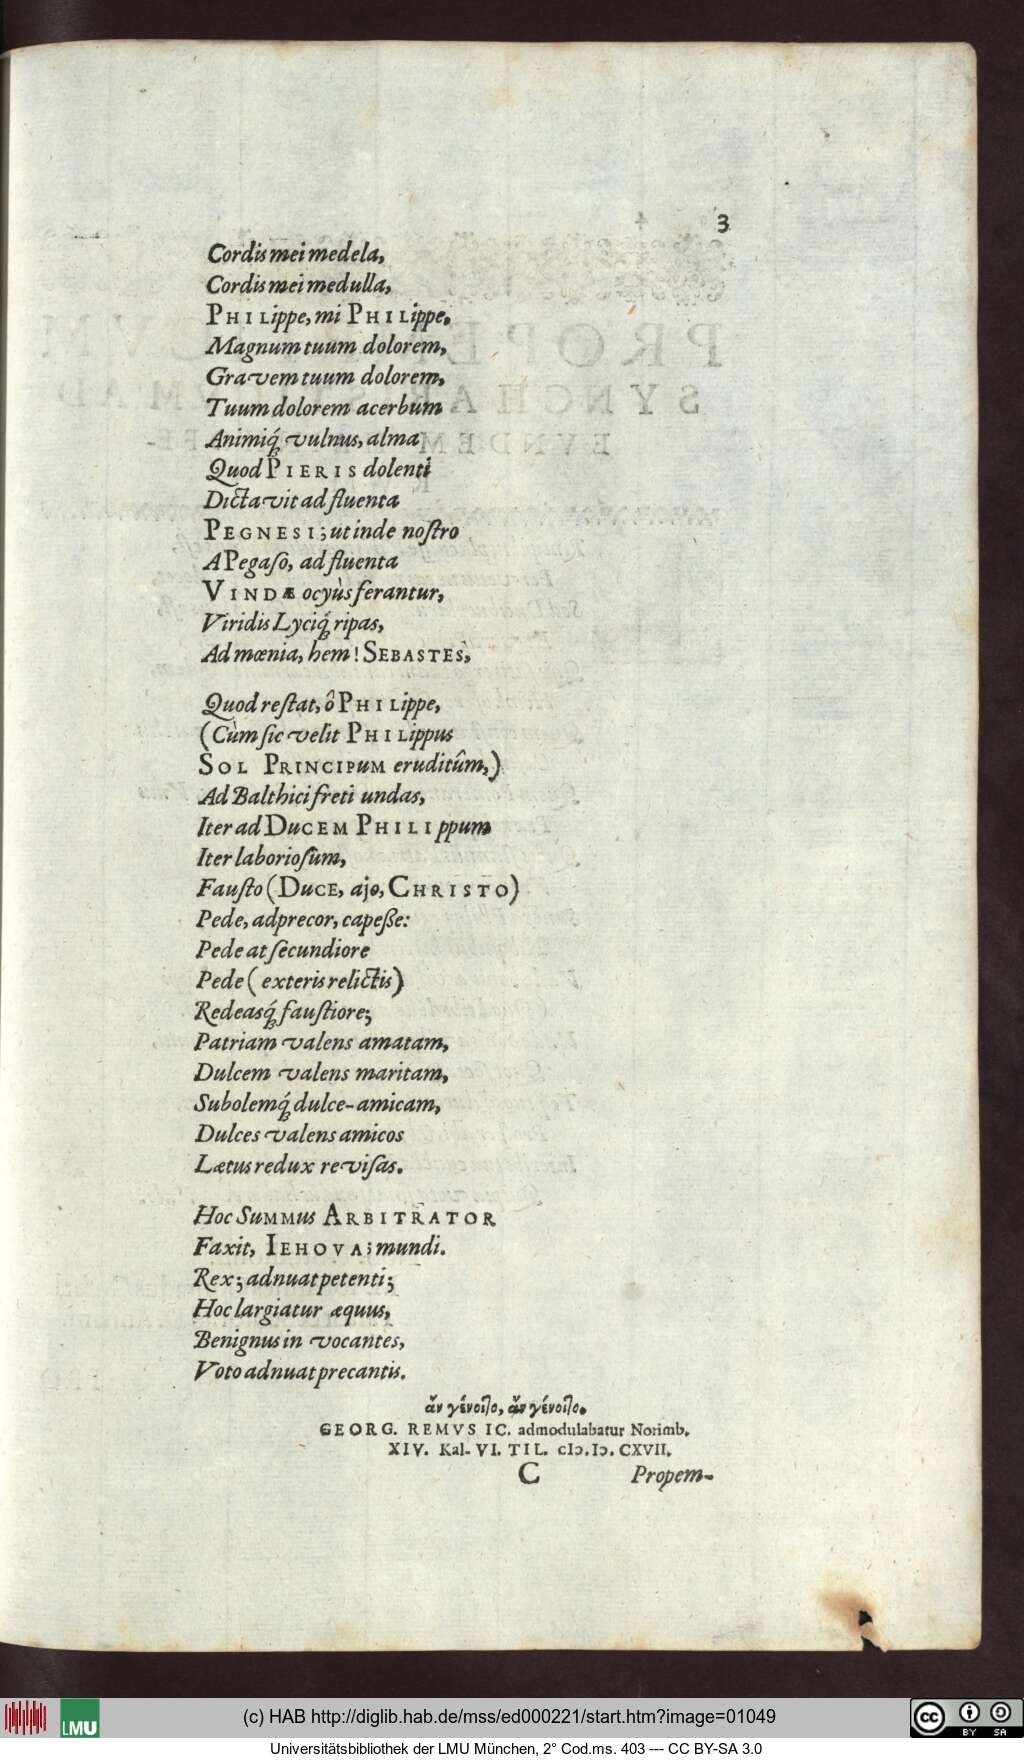 3
Cordis mei medela,
Cordis mei medulla,
PHILippe, mi PHILippe.
Magnum tuum dolorem,
Gravem tuum dolorem,
Tuum dolorem acerbum
Animiq́ꝫ vulnus, alma
Quod PIERIS dolenti
Dictavit ad fluenta
PEGNESI; ut inde noſtro
A Pegaſo, ad fluenta
VINDÆ ocyùs ferantur,
Viridis Lyciq́ꝫ ripas,
Ad mœnia, hem! SEBASTES,
Quod reſtat, ô PHILippe,
(Cùm ſic velit PHILippus
SOL PRINCIPuM eruditûm,)
Ad Balthici freti undas,
Iter ad DuCEM PHILIppum
Iter laborioſum,
Fauſto (DuCE, ajo, CHRISTO)
Pede, adprecor, capeße:
Pede at ſecundiore
Pede (exteris relictis)
Redeasq́ꝫ fauſtiore;
Patriam valens amatam,
Dulcem valens maritam,
Subolemq́ꝫ dulce-amicam,
Dulces valens amicos
Lætus redux reviſas.
Hoc SuMMus ARBITRATOR
Faxit, IEHOVA; mundi.
Rex; adnuat petenti;
Hoc largiatur æquus,
Benignus in vocantes,
Voto adnuat precantis.
ἂν γένοιτο, ἂν γένοιτο.
GEORG. REMVS IC. admodulabatur Norimb.
XIV. Kal. VI. TIL. cIↄ.Iↄ. CXVII.
C Propem-
(c) HAB http://diglib.hab.de/mss/ed000221/start.htm?image=01049
LMU
CC BY SA
Universitätsbibliothek der LMU München, 2° Cod.ms. 403 --- CC BY-SA 3.0